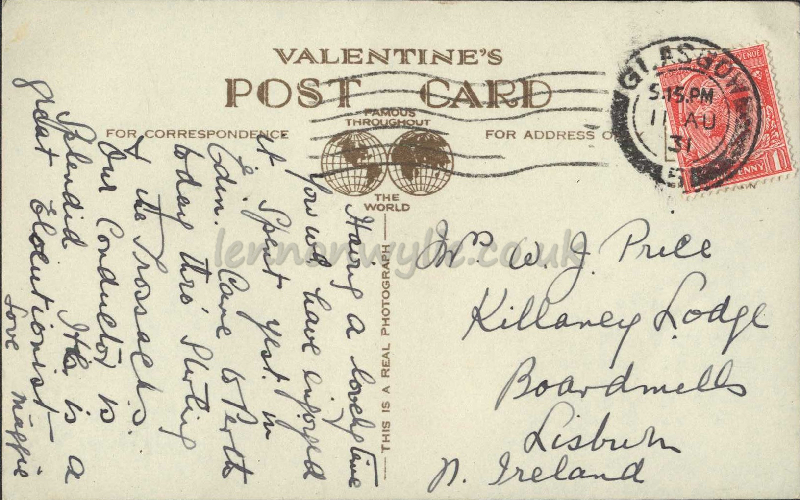 VALENTINE'S
POST CARD
FAMOUS
THROUGHOUT
THE
WORLD
FOR CORRESPONDENCE
FOR ADDRESS O
GLASGOW
5.15.PM
11 AU
31
5
PENNY
THIS IS A REAL PHOTOGRAPH
Having a lovely time
You wd have enjoyed
it Spent yest. in
Edin. Came to Perth
today thro' Stirling
& the Trossachs
Our Conductor is
Splendid He is a
great Elocutionist
Love Maggie
Mrs W. J. Price
Killaney Lodge
Boardmills
Lisburn
N. Ireland
lennonwylie.co.uk